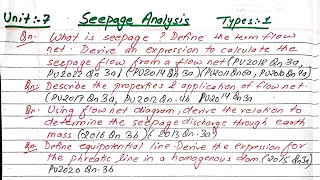 Unit:-7 Seepage Analysis Types:1
Qn:- What is seepage? Define the term flow
net. Derive an expression to calculate the
seepage flow from a flow net (PU2018 Qn 3a,
PU2022 Qn 3a) (PU2019 Qn 3a) (PU2011 Qn 6a, PU2010 Qn 4a)
Qn:- Describe the properties & application of flow net.
(PU2017 Qn 3a, PU2012 Qn. 4b PU2014 Qn 3a
Qn:- Using flow net diagram, derive the relation to
determine the seepage discharge through earth
mass (2016 Qn 3b) (2013 Qn 3a)
Qn:- Define equipotential line. Derive the expression for
the phreatic line in a homogenous dam. (2015 Qn 3a)
PU2020 Qn. 3b